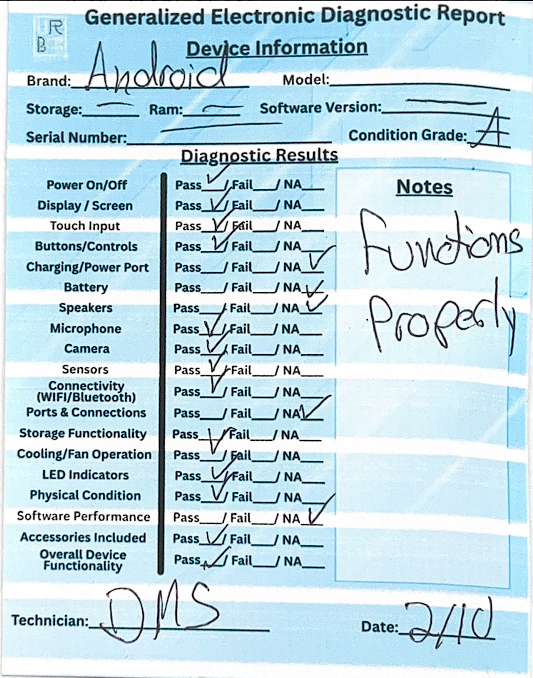 R
B
Generalized Electronic Diagnostic Report
Device Information
Brand: Android Model:
Storage: — Ram: — Software Version: —
Serial Number: — Condition Grade: A
Diagnostic Results
Power On/Off Pass ✓/Fail__/ NA__
Display / Screen Pass ✓/Fail__/ NA__
Touch Input Pass ✓/Fail__/ NA__
Buttons/Controls Pass ✓/Fail__/ NA__
Charging/Power Port Pass__/ Fail__/ NA ✓
Battery Pass__/ Fail__/ NA ✓
Speakers Pass__/ Fail__/ NA ✓
Microphone Pass ✓/Fail__/ NA__
Camera Pass ✓/Fail__/ NA__
Sensors Pass ✓/Fail__/ NA__
Connectivity
(WIFI/Bluetooth) Pass ✓/Fail__/ NA__
Ports & Connections Pass__/ Fail__/ NA ✓
Storage Functionality Pass ✓/Fail__/ NA__
Cooling/Fan Operation Pass__/ Fail__/ NA__
LED Indicators Pass ✓/Fail__/ NA__
Physical Condition Pass ✓/Fail__/ NA__
Software Performance Pass__/ Fail__/ NA ✓
Accessories Included Pass ✓/Fail__/ NA__
Overall Device
Functionality Pass ✓/Fail__/ NA__
Notes
Functions
Properly
Technician: DMS Date: 2/10